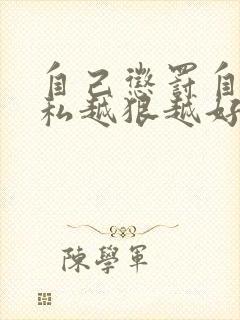 自己懲罰自
私越狠越好
陳學軍